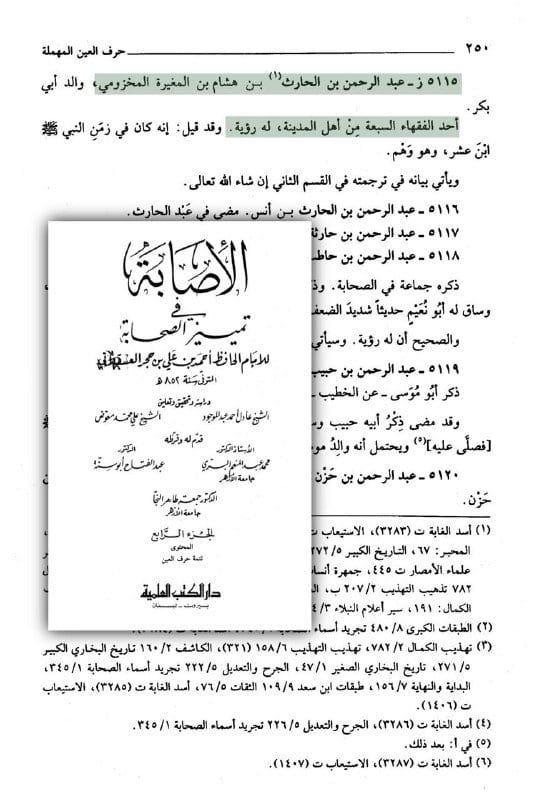 ٢٥٠ ــــــ حرف العين المهملة
٥١١٥ ز ـ عبد الرحمن بن الحارث(١) بن هشام بن المغيرة المخزومي، والد أبي
بكر.
أحد الفقهاء السبعة مِنْ أهل المدينة، له رؤية. وقد قيل: إنه كان في زمَنِ النبي ﷺ
ابْنَ عشر، وهو وَهْم.
ويأتي بيانه في ترجمته في القسم الثاني إن شاء الله تعالى.
٥١١٦ ـ عبد الرحمن بن الحارث بن أنس. مضى في عَبْد الحارث.
٥١١٧ ـ عبد الرحمن بن حارثة
٥١١٨ ـ عبد الرحمن بن حاطب
ذكره جماعة في الصحابة.
وساق له أبُو نُعَيْمٍ حديثاً شديدَ
والصحيح أن له رؤية. وسيأتي
٥١١٩ ـ عبد الرحمن بن حبيب
ذكر أبُو مُوسَى ـ عن الخطيب ـ
وقد مضى ذِكْرُ أبيه حبيب
[فصلَّى عليه](٥) ويحتمل أنه والدُ
٥١٢٠ ـ عبد الرحمن بن حَزْن
حَزْن.
الأصابة
في
تمييز الصحابة
للإمام الحافظ أحمد بن علي بن حجر العسقلاني
المتوفى سنة ٨٥٢ هـ
دراسة وتحقيق وتعليق
الشيخ عادل أحمد عبد الموجود الشيخ علي محمد معوض
قدم له وقرظه
الأستاذ الدكتور الدكتور
محمد عبد المنعم البري عبد الفتاح أبو سنة
جامعة الأزهر
الدكتور جمعة طاهر النجار
جامعة الأزهر
الجزء الرابع
المحتوى
تتمة حرف العين
دار الكتب العلمية
بيروت ـ لبنان
(١) أسد الغابة ت (٣٢٨٣)، الاستيعاب ت
المحبر: ٦٧، التاريخ الكبير ٢٧٢/٥
علماء الأمصار ت ٤٤٥، جمهرة
٧٨٢ تذهيب التهذيب ٢٠٧/٢ ب،
الكمال: ١٩١، سير أعلام النبلاء ٤/٣
(٢) الطبقات الكبرى ٤٨٠/٨ تجريد أسماء
(٣) تهذيب الكمال ٧٨٢/٢، تهذيب التهذيب ١٥٨/٦ (٣٢١)، الكاشف ١٦٠/٢ تاريخ البخاري الكبير
٢٧١/٥، تاريخ البخاري الصغير ٤٧/١، الجرح والتعديل ٢٢٢/٥ تجريد أسماء الصحابة ٣٤٥/١،
البداية والنهاية ١٥٦/٧، طبقات ابن سعد ١٠٩/٩ الثقات ٧٦/٥، أسد الغابة ت (٣٢٨٥)، الاستيعاب
ت (١٤٠٦).
(٤) أسد الغابة ت (٣٢٨٦)، الجرح والتعديل ٢٢٦/٥ تجريد أسماء الصحابة ٣٤٥/١.
(٥) في أ: بعد ذلك.
(٦) أسد الغابة ت (٣٢٨٧)، الاستيعاب ت (١٤٠٧).